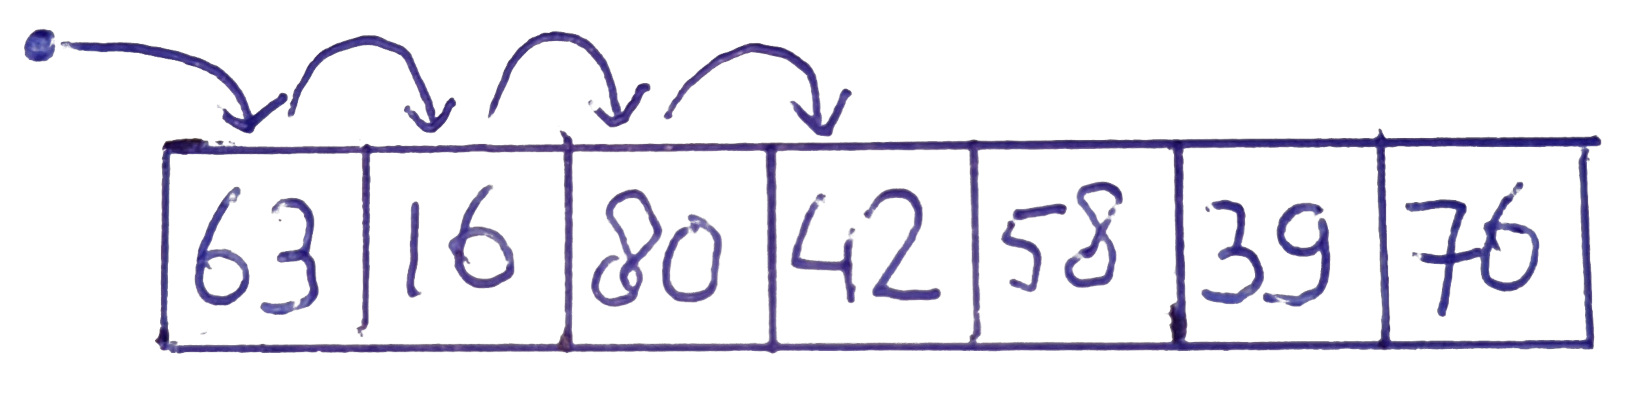 63 16 80 42 58 39 76